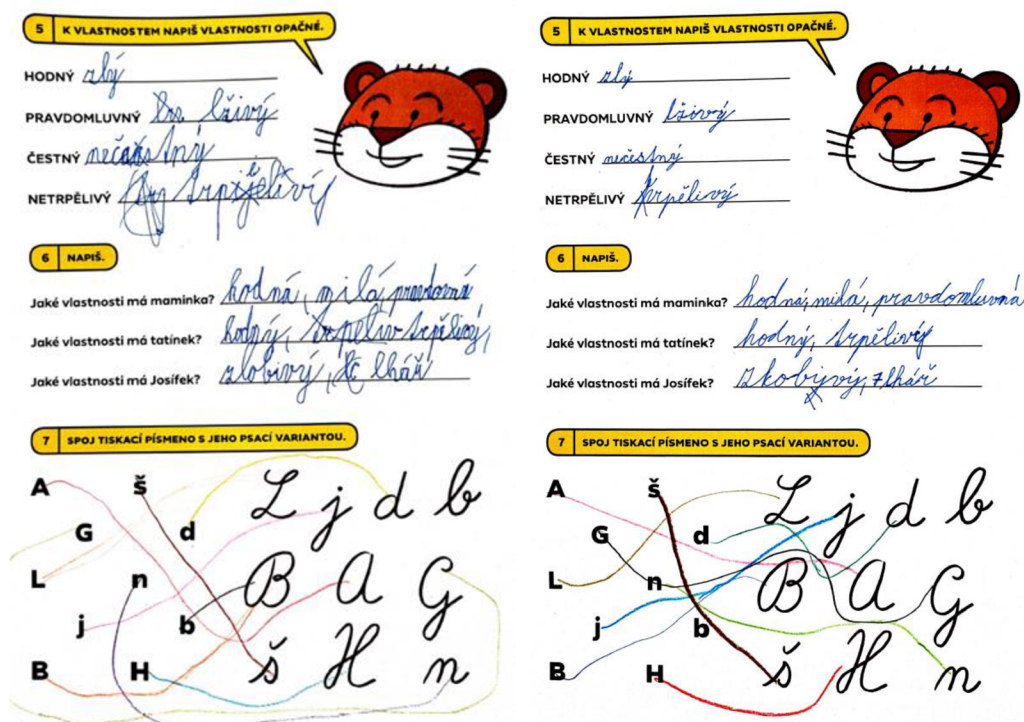 5 K VLASTNOSTEM NAPIŠ VLASTNOSTI OPAČNÉ.
HODNÝ zlý
PRAVDOMLUVNÝ lživý
ČESTNÝ nečestný
NETRPĚLIVÝ trpělivý
6 NAPIŠ.
Jaké vlastnosti má maminka? hodná, milá,
Jaké vlastnosti má tatínek? hodný, trpělivý,
Jaké vlastnosti má Josífek? zlobivý, lhář
7 SPOJ TISKACÍ PÍSMENO S JEHO PSACÍ VARIANTOU.
A š L j d b
G d
L n B A G
j b
B H š H n
5 K VLASTNOSTEM NAPIŠ VLASTNOSTI OPAČNÉ.
HODNÝ zlý
PRAVDOMLUVNÝ lživý
ČESTNÝ nečestný
NETRPĚLIVÝ trpělivý
6 NAPIŠ.
Jaké vlastnosti má maminka? hodná, milá, pravdomluvná
Jaké vlastnosti má tatínek? hodný, trpělivý
Jaké vlastnosti má Josífek? lhář
7 SPOJ TISKACÍ PÍSMENO S JEHO PSACÍ VARIANTOU.
A š L j d b
G d
L n B A G
j b
B H š H n